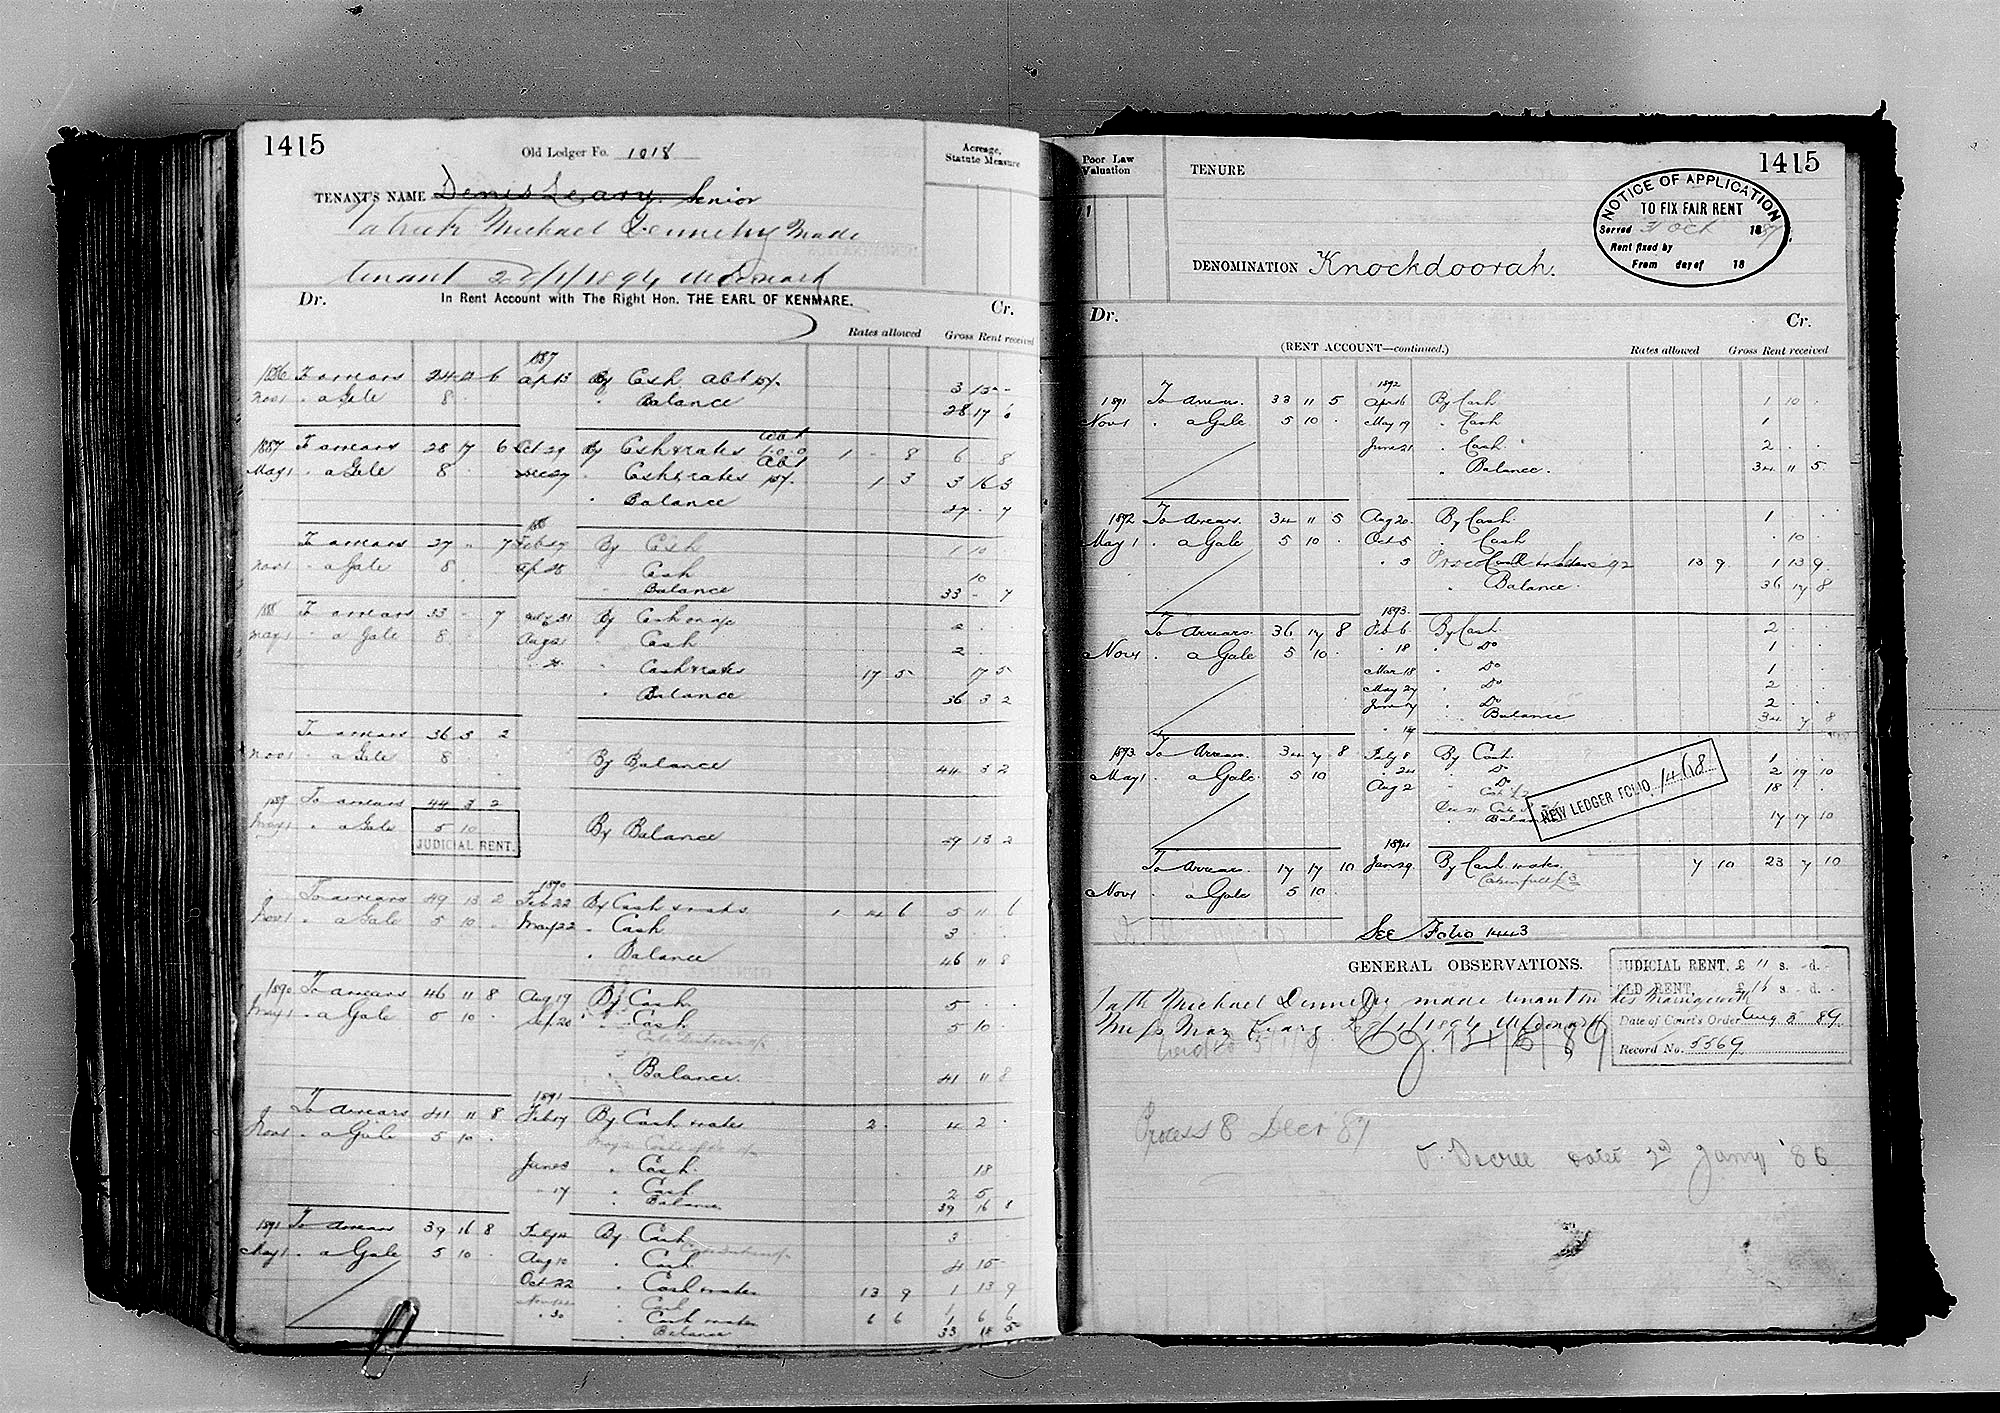 1415
Old Ledger Fo. 1018
Acreage,
Statute Measure
TENANT'S NAME Denis Leary Senior
Patrick Michael Dennehy made
tenant 22/1/1894
Dr. In Rent Account with The Right Hon. THE EARL OF KENMARE. Cr.
Rates allowed Gross Rent received
1887
1886 To arrears 24 12 6 Apr 13 By Cash Abt 3 13 -
Nov 1 " a Gale 8 " Balance 28 17 6
Abt
1887 To arrears 28 17 6 Oct 29 By Cash & rates 1.0.0 1 - 8 6 - 8
Abt
May 1 " a Gale 8 Dec 27 " Cash & rates 1 3 3 16 3
" Balance 27 - 7
1888
To arrears 27 - 7 Feb 27 By Cash 1 10
Nov 1 " a Gale 8 Apr 28 Cash 10
Balance 33 - 7
1888 To arrears 33 - 7 By Cash on a/c 2
May 1 " a Gale 8 Aug 21 " Cash 2
" Cash & rates 17 5 17 5
" Balance 36 3 2
To arrears 36 3 2
Nov 1 " a Gale 8 By Balance 44 3 2
1889 To arrears 44 3 2
May 1 " a Gale 5 10 By Balance 49 13 2
JUDICIAL RENT.
1890
To arrears 49 13 2 Feb 22 By Cash & rates 1 4 6 5 11 6
Nov 1 " a Gale 5 10 May 22 " Cash 3
" Balance 46 11 8
1890 To arrears 46 11 8 Aug 19 By Cash 5
May 1 " a Gale 5 10 Sep 20 " Cash 5 10
" Balance. 41 11 8
1891
To arrears 41 11 8 Feb 7 By Cash & rates 2 4 2
Nov 1 " a Gale 5 10
June 5 " Cash 18
" 17 " Cash 2 5
" Balance 39 16 8
1891 To arrears 39 16 8 July 4 By Cash 3
May 1 " a Gale 5 10 Aug 10 " Cash 4 15
Oct 22 " Cash & rates 13 9 1 13 9
" Cash 1
" 30 " Cash & rates 6 6 1 6 6
" Balance 33 11 5
Poor Law
Valuation
TENURE
1415
NOTICE OF APPLICATION
TO FIX FAIR RENT
Served 31 Oct 1887
Rent fixed by
From day of 18
DENOMINATION Knockdoorah.
Dr. Cr.
(RENT ACCOUNT—continued.) Rates allowed Gross Rent received
1892
1891 To arrears. 33 11 5 Apr 16 By Cash 1 10
Nov 1 " a Gale 5 10 May 19 " Cash 1
June 21 " Cash 2
" Balance. 34 11 5
1892 To Arrears. 34 11 5 Aug 20 By Cash. 1
May 1 " a Gale 5 10 Oct 5 " Cash 10
" 5 92 13 9 1 13 9
" Balance. 36 17 8
1893
To Arrears 36 17 8 Feb 6 By Cash 2
Nov 1 " a Gale 5 10 " 18 " Do 1
Mar 18 " Do 1
May 27 " Do 2
June 17 " Do 2
" Balance 34 7 8
1893 To Arrears. 34 7 8 July 8 By Cash. 1
May 1 " a Gale. 5 10 " 24 " Do 2 19 10
Aug 2 " Do 18
Balance 17 17 10
NEW LEDGER FOLIO 1468
1894
To Arrears. 17 17 10 Jan 29 By Cash & rates. 7 10 23 7 10
Nov 1 " a Gale 5 10 Cash in full £3
See Folio 1443
GENERAL OBSERVATIONS.
JUDICIAL RENT, £ 11 s. - d. -
OLD RENT, £ 16 s. - d. -
Date of Court's Order Aug 3 89
Record No. 5569
Path Michael Dennehy made tenant on his marriage with
Miss Mary Leary 22/1/1894
Process 8 Decr 87
Decree dated 3rd Jany '86